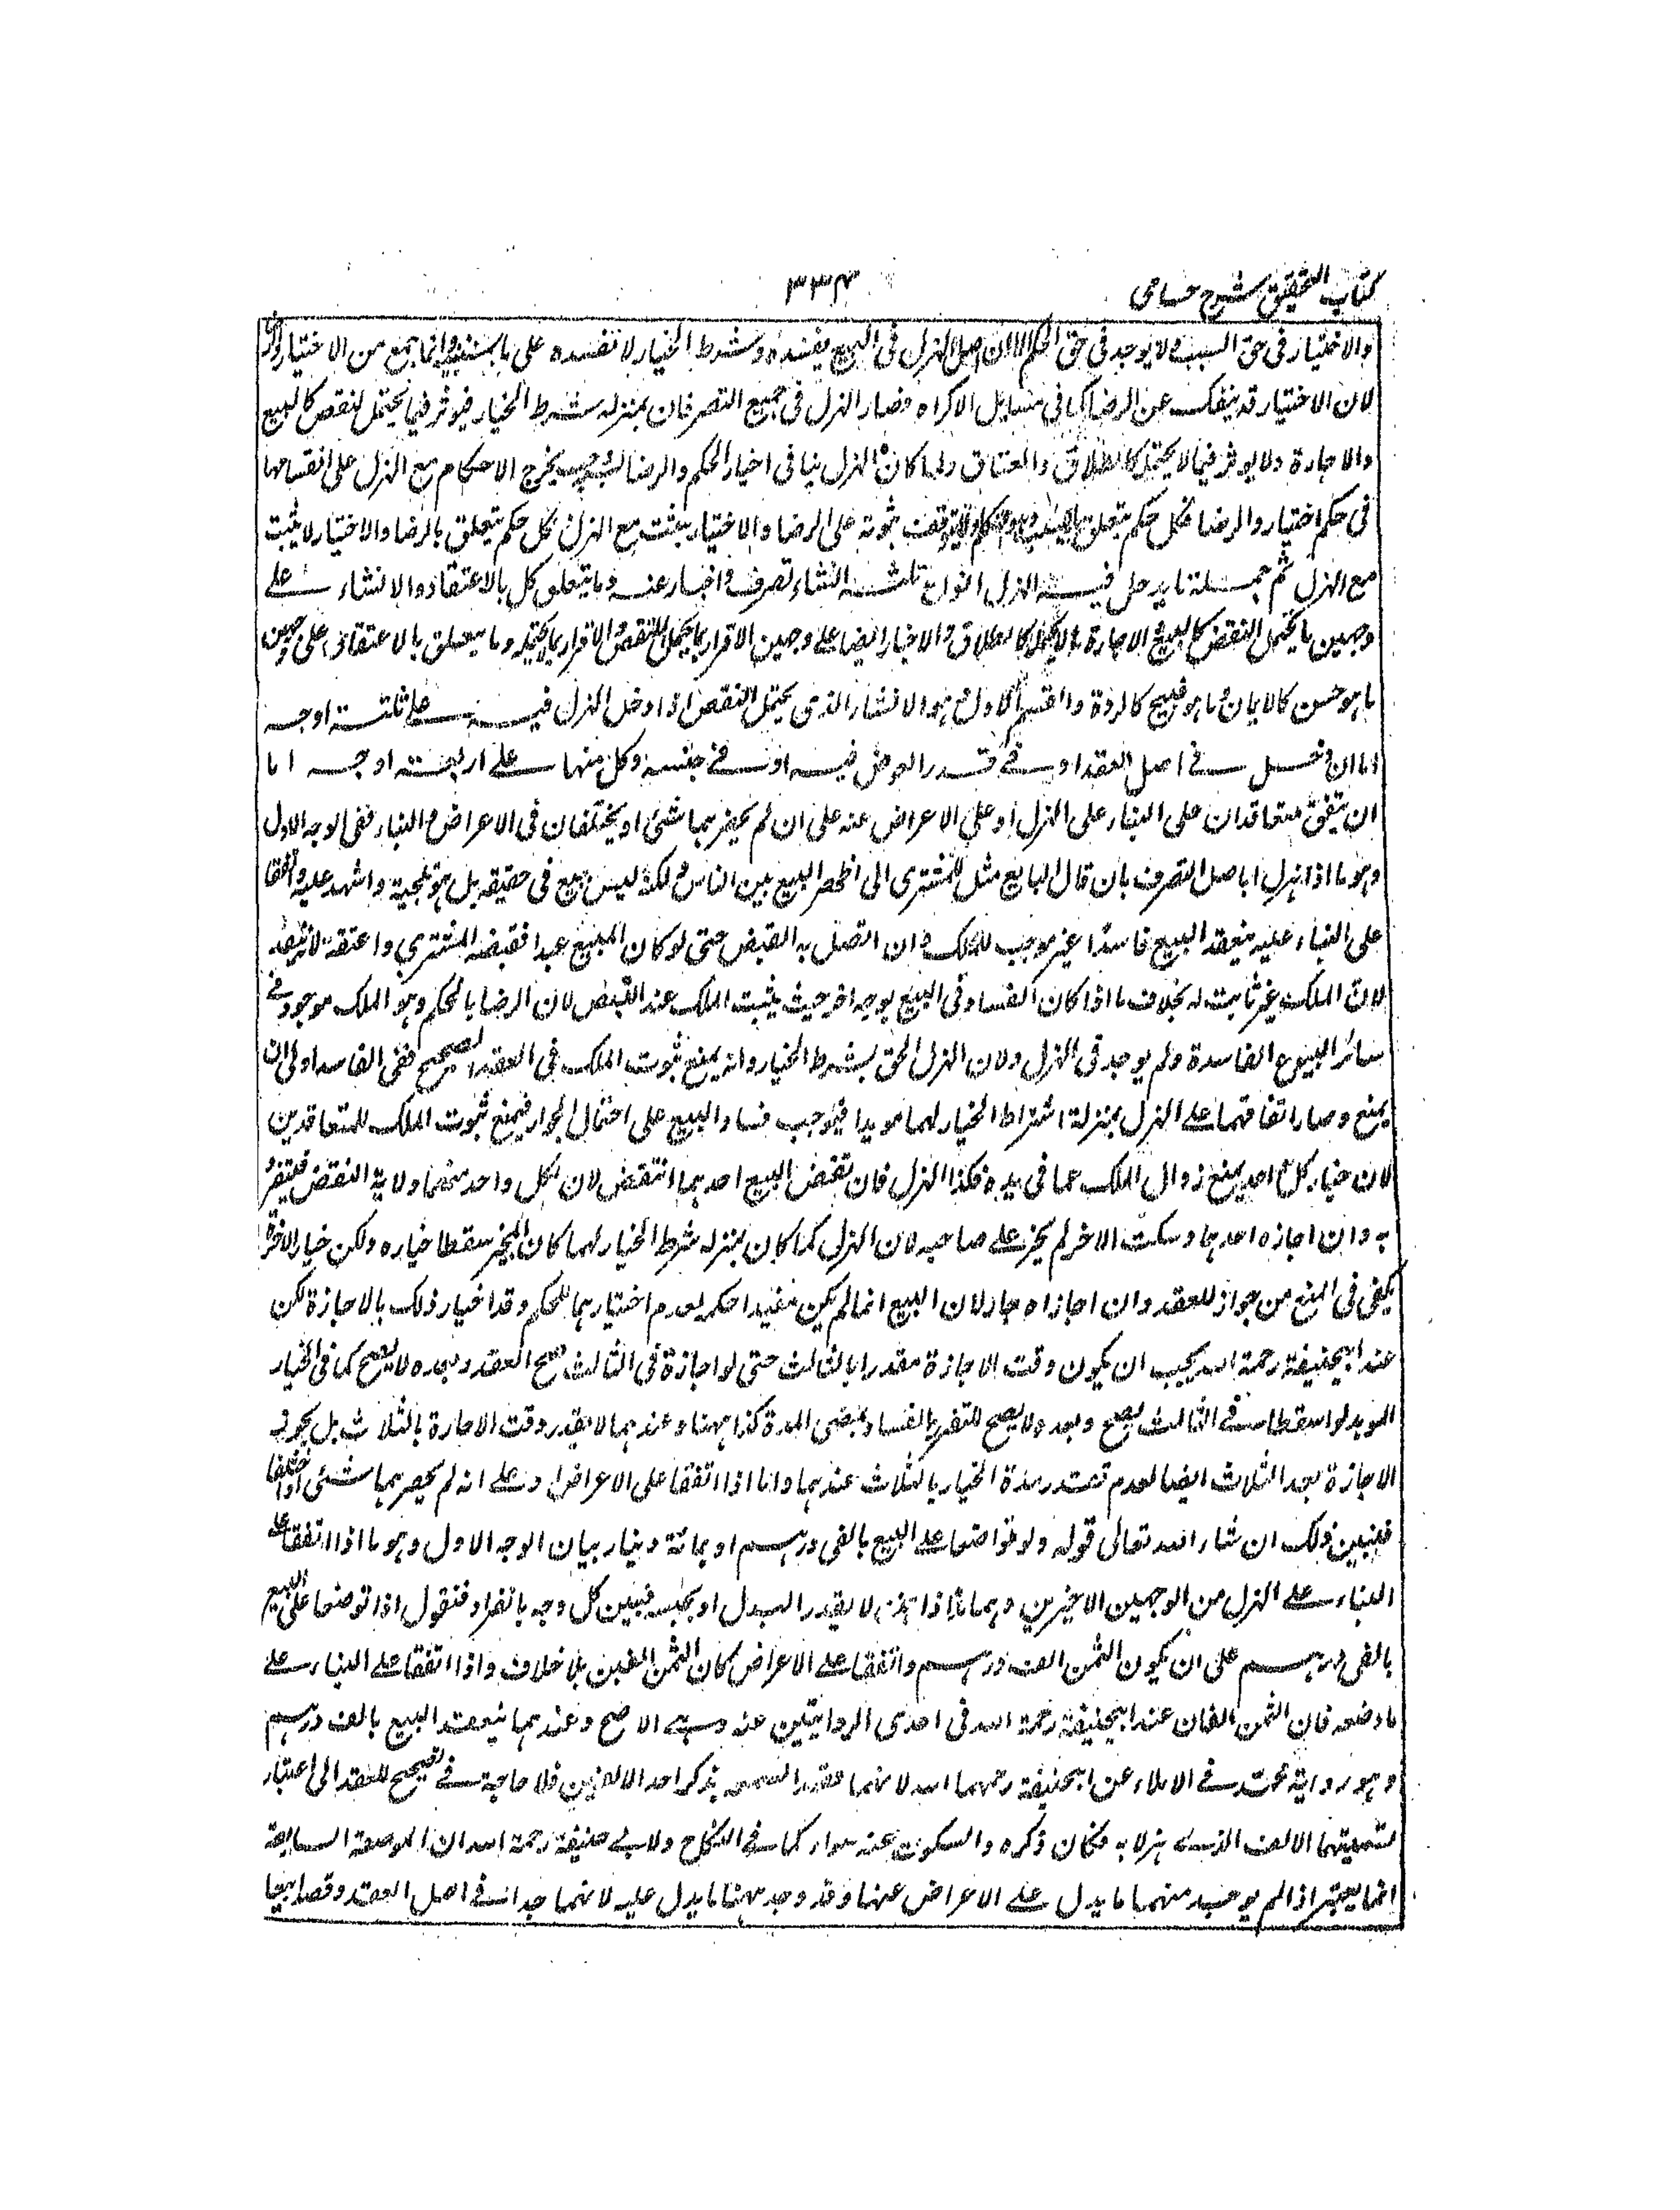 كتاب التحقيق شرح حسامى
٣٣٤
والاختيار فى حق السبب ولا يوجد فى حق الحكم الا ان اصل الهزل فى البيع يفسده وشرط الخيار لا تفسده على ما سنبينه وانما جمع من الاختيار والرضا
لان الاختيار قد ينفك عن الرضا كما فى مسايل الاكراه فصار الهزل فى جميع التصرفات بمنزله شرط الخيار فيوثر فيما يحتمل النقض كالبيع
والاجارة ولا يوثر فيما لا يحتمل كالطلاق والعتاق ولما كان الهزل ينافى اختيار الحكم والرضا به يجب تخرج الاحكام مع الهزل على انقسامها
فى حكم اختيار والرضا فكل حكم يتعلق بالسبب ولا يتوقف ثبوته على الرضا والاختيار يثبت مع الهزل وكل حكم يتعلق بالرضا والاختيار لا يثبت
مع الهزل ثم جملة ما يدخل فيه الهزل انواع ثلثة انشاء تصرف واخبار عنه وما يتعلق كل بالاعتقاد والانشاء على
وجهين ما يحتمل النقض كالبيع والاجارة وما لا يحتمل كالطلاق والاخبار ايضا على وجهين الاقرار بما يحتمل النقض والاقرار بما لا يحتمله وما يتعلق بالاعتقاد على وجهين
ما هو حسن كالايمان وما هو قبيح كالردة واقسم الاول وهو الانشاء الذى يحتمل النقض اذا دخل الهزل فيه على ثلثة اوجه
اما ان دخل فى اصل العقد او فى قدر العوض فيه او فى جنسه وكل منها على اربعة اوجه اما
ان يتفق متعاقدان على البناء على الهزل او على الاعراض عنه على ان لم يحضرهما شئ او يختلفان فى الاعراض والبناء ففى الوجه الاول
وهو ما اذا هزلا باصل التصرف بان قال البايع مثل للمشترى انى اظهر البيع بين الناس ولكنه ليس بيع فى حقيقه بل هو تلجية واشهد عليه واتفقا
على البناء عليه ينعقد البيع فاسدًا غير موجب للملك وان اتصل به القبض حتى لو كان المبيع عبدا فقبضه المشترى واعتقه لا ينفذ
لان الملك غير ثابت له بخلاف ما اذا كان الفساد فى البيع بوجه اخر حيث يثبت الملك عند القبض لان الرضا بالحكم وهو الملك موجود فى
سائر البيوع الفاسدة ولم يوجد فى الهزل ولان الهزل الحق بشرط الخيار وانه يمنع ثبوت الملك فى العقد الصحيح ففى الفاسد اولى ان
يمنع وصار اتفاقهما على الهزل بمنزلة اشتراط الخيار لهما موبدا فيوجب فساد البيع على احتمال الجواز فيمنع ثبوت الملك للمتعاقدين
لان خيار كل احد يمنع زوال الملك عما فى يده فكذا الهزل فان نقض البيع احدهما انتقض لان لكل واحد منهما ولاية النقض فيتفرد
به وان اجازه احدهما وسكت الاخر لم يجز على صاحبه لان الهزل كما كان بمنزله شرط الخيار لهما كان المجيز سقطا خياره ولكن خيار الاخر
يكفى فى المنع من جواز للعقد وان اجازاه جاز لان البيع انما لم يكن مفيدا حكمه لعدم اختيارهما للحكم وقد اختيار ذلك بالاجازة لكن
عند ابيحنيفة رحمة الله يجب ان يكون وقت الاجازة مقدرا بالثالث حتى لو اجازة فى الثالث صح العقد وبعده لا يصح كما فى الخيار
الموبد لو اسقطا فى الثالث يصح وبعده لا يصح للتقرر الفساد بمضى المدة كذا ههنا وعندهما لا يقدر وقت الاجارة بالثلاث بل يجوز
الاجازة بعد الثلاث ايضا لعدم تقدر مدة الخيار بالثلاث عندهما واما اذا اتفقا على الاعراض او على انه لم يحضرهما شئ او اختلفا
فنبين ذلك ان شاء الله تعالى قوله ولو تواضعا على البيع بالفى درهم او بمائة دينار بيان الوجه الاول وهو ما اذا اتفقا على
البناء على الهزل من الوجهين الاخيرين وهما ما اذا هزلا بقدر البدل او بجنسه فنبين كل وجه بانفراد فنقول اذا توضعا على البيع
بالفى درهم على ان يكون الثمن الف درهم واتفقا على الاعراض كان الثمن الفين بلا خلاف واذا اتفقا على البناء على
ما وضعه فان الثمن الفان عند ابيحنيفة رحمة الله فى احدى الروايتين عنه وهى الاصح وعندهما ينعقد البيع بالف درهم
وهو رواية محمد فى الاملاء عن ابيحنيفة رحمهما الله لانهما قصد السمعه بذكر احد الالفين فلا حاجة فى تصحيح للعقد الى اعتبار
تسميتهما الالف الذى هزلا به فكان ذكره والسكوت عنه سواء كما فى النكاح ولابى حنيفة رحمة الله ان المواضعة السابقة
انما يعتبر اذا لم يوجد منهما ما يدل على الاعراض عنها وقد وجد ههنا ما يدل عليه لانهما جدا فى اصل العقد وقصدا بيعا